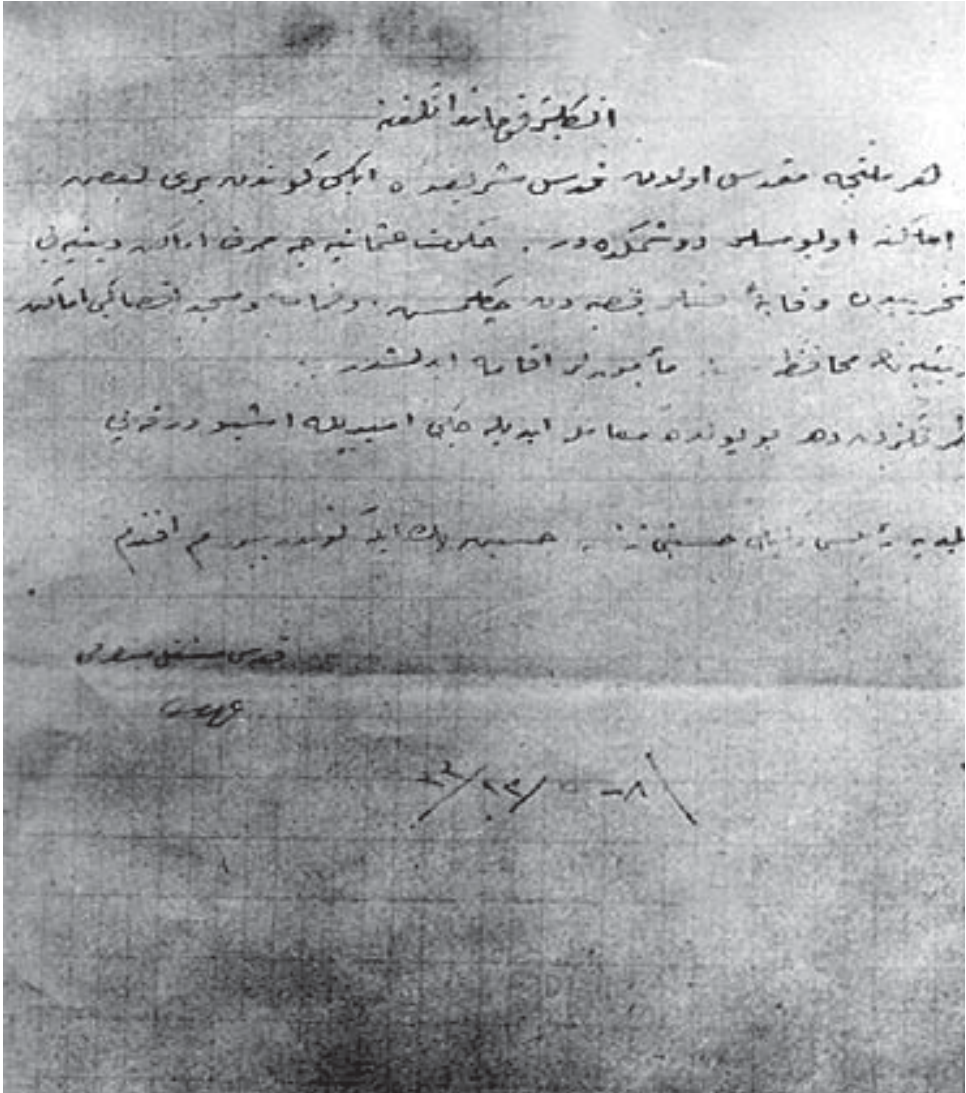 انكليز قوماندانلغنه
هر ملتجه مقدس اولان قدس شريفده ايكى كوندن برى بعض
اماكنه اوبوسلر دوشمكده در . حكومت عثمانيه جه صرف اماكن دينيه يى
تخريبدن وقايةً عسكر قصبه دن چكلمش وقمامه ومسجد اقصا كبى اماكن
دينيه نك محافظه مأمورلر اقامه ايدلمشدر .
طرفكزدن دخى بو يولده معامله ايديله جكى اميديله اشبو ورقه يى
بلديه رئيس وكيلى حسينى زاده حسين بك ايله كوندرييورم افندم
قدس مستقل متصرفى
عزت